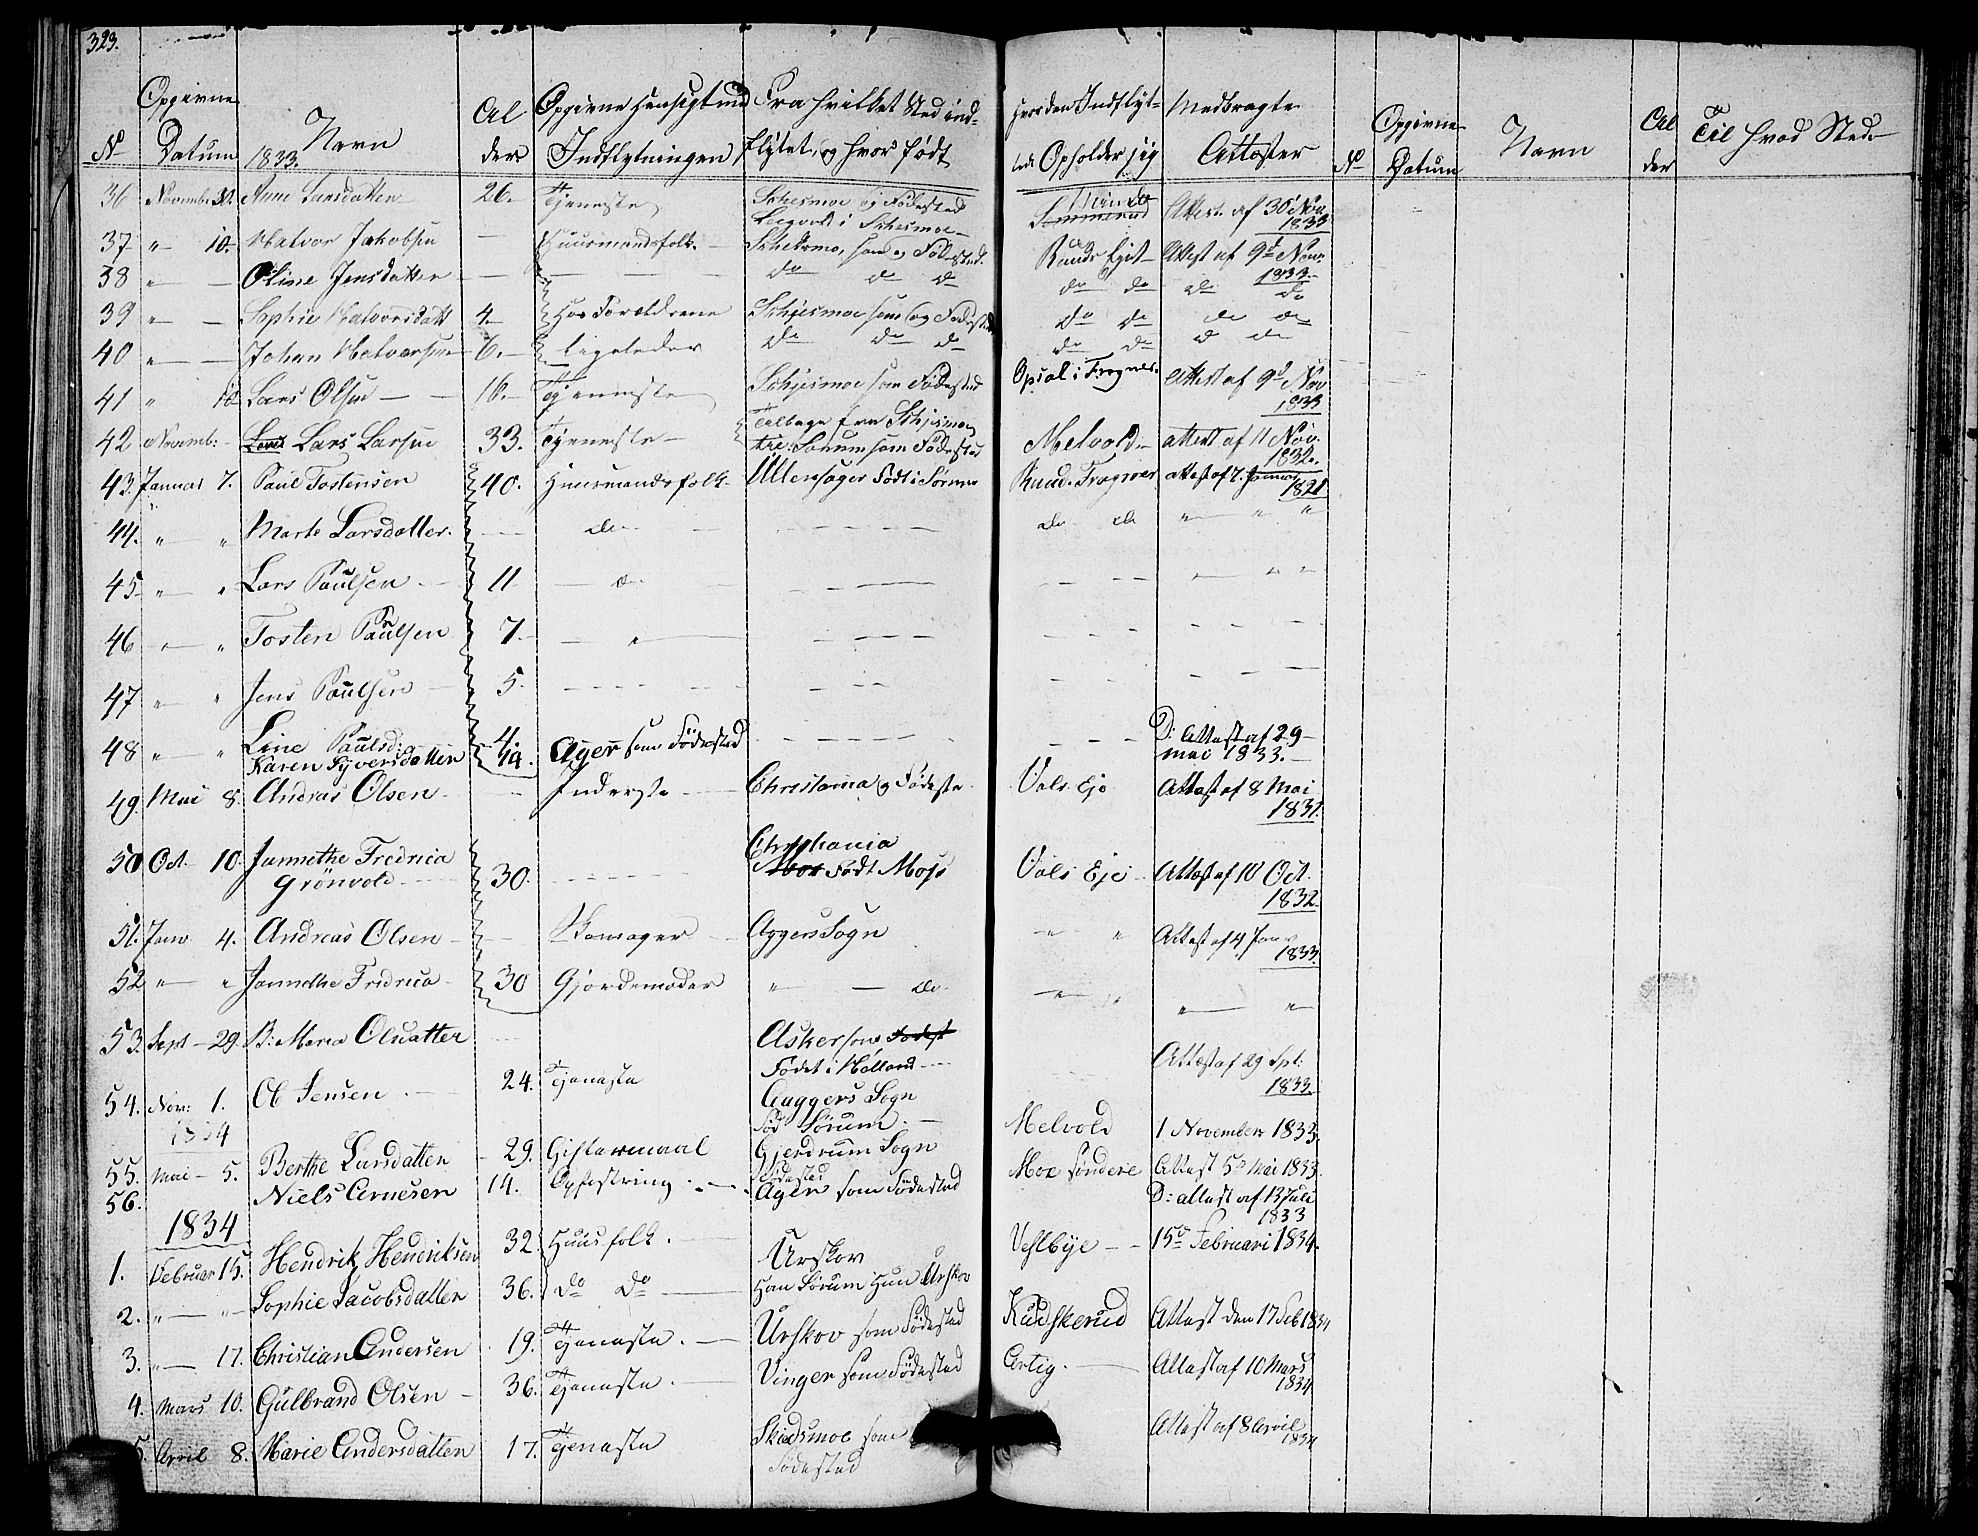 323.
N Opgivne Datum 1833. Navn Al der Opgivne Hensigt med Indflytningen Fra hvilket Sted ind- flytet, og hvor født Hvor den Indflyt- tede Opholder sig Medbragte Attester N Opgivne Datum Navn Al der Til hvad Sted
36 Novembr 30. Anne Larsdatter 26. Tjeneste Schesmoe og Fødested Attest af 30 Nov. 1833
37 " 10. Halvor Jakobsen — Huusmandsfolk. Schesmo, som og Fødested. Ruuds Eget Attest af 9d Novr. 1833.
38 " — Oline Jensdatter — — do do do do do do do
39 " — Sophie Halvorsdatt 4. Hos Forældrene Schjesmoe som og Fødested do do do do
40 " — Johan Halvorsen 6. — ligeleder do do do do do do do
41 " 10 Lars Olsen — 16. — Tjeneste Schjesmoe som Fødested Opsal i Frogner. Attest af 9d Nov 1833
42 Novemb: - Lars Larsen 33. Tjeneste — Tilbage fra Schjesmoe til Sørum som Fødested Melvold. attest af 11 Nov. 1832.
43. Januar 7. Paul Tostensen 40. Huusmandsfolk Ullensager Født i Sørum Ruud. Frogner attest af 7. Januar 1821
44. " " Marte Larsdatter. — do — — — do do " " "
45 " " Lars Paulsen — 11 — do — — — —
46 " " Tosten Paulsen 7. — " — — — —
47 " " Jens Paulsen — 5. — — — —
48 " " Line Paulsd: 4 — — — —
Karen Syversdatter 19. Ager som Fødested D: Attest af 29 mai 1833. —
49. Mai 8. Andras Olsen — Inderste Christiania og Fødeste Vals Eje Attest af 8 Mai 1831.
50 Oct. 10. Jannethe Fredrica Grönvold 30. — Christiania Født Moss Vals Eje Attest af 10 Oct. 1832.
51. Janv 4. Andreas Olsen — Skomager — Aggers Sogn " " Attest af 4 Janv 1833.
52 " " Jannethe Fridrica 30 Gjordemoder " — do. " " " "
53. Sept — 29. B: Maria Olsdatter Asker som Fødest Født i Holland — Attest af 29 Spt: 1833.
54. Nov: 1. Ol Jensen — 24. Tjeneste Auggers Sogn Fød Sørum. — Melvold 1 November 1833.
1834
55. Mai — 5. Berthe Larsdatter — 29. Giftermaal Gjerdrum Sogn Fødested Moe søndere Attest 5d Mai 1833.
56. Niels Arnesen 14. Opfostring. — Ager som Fødested D: attest af 13 Juli 1833
1834
1. Februar 15. Hendrik Hendriksen 32 Huusfolk. Urskov Vehlbye — 15d Februari 1834.
2. " — " — Sophie Jacobsdatter 36. do do — Han Sørum Hun Urskov
3. " — 17. Christian Andersen 19. Tjeneste. — Urskov som Fødested Kudskerud Attest den 17 Feb 1834
4. Mars 10. Gulbrand Olsen — 36. Tjeneste. — Vinger som Fødested Artig. — Attest af 10 Mars 1834
5. April 8. Marie Andersdatter 17. Tjeneste Skedsmoe som Fødested Attest af 8 April 1834